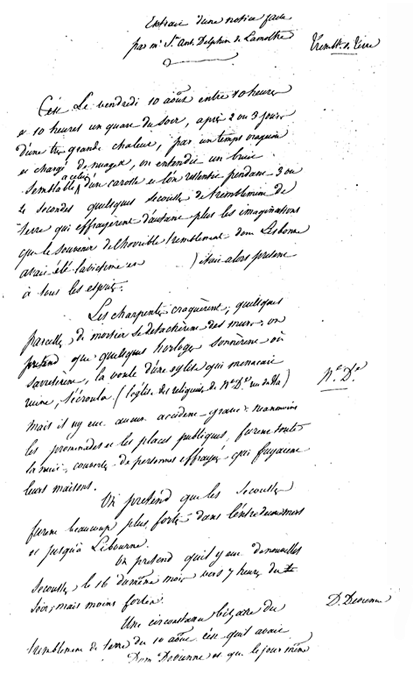 Extrait d'une notice faite
par mr St. Ant. Delphin de Lamothe
Tremblt. de Terre
C'est Le vendredi 10 août entre 10 heures
et 10 heures un quart du soir, après 2 ou 3 jours
d'une très grande chaleur, par un temps orageux
et chargé de nuages, on entendit un bruit
semblable à celui d'un carosse et l'on ressentit pendant 3 ou
4 secondes quelques secousses de tremblement de
terre qui effrayèrent d'autant plus les imaginations
que le souvenir de l'horrible tremblement dont Lisbonne
avait été la victime en ) était alors présent
à tous les esprits.
Les charpentes craquèrent, quelques
parcelles de mortier se détachèrent des murs, on
prétend que quelques horloges sonnèrent ou
s'arrêtèrent, la voute d'une église qui menaçait
ruine, s'écroula (l'église des religieuses de Ne. De. rue du Ha)
Ne. De.
mais il n'y eut aucun accident grave : néanmoins
les promenades et les places publiques, furent toute
la nuit, couvertes de personnes effrayées qui fuyaient
leurs maisons.
On prétend que les secousses
furent beaucoup plus fortes dans l'entre deux mers
et jusqu'à Libourne.
On prétend qu'il y eut de nouvelles
secousses le 16 du même mois vers 7 heures du
soir, mais moins fortes.
Une circonstance bizarre du
D. Devienne
tremblement de terre du 10 août c'est qu'il avait
Dom Devienne et que le jour même